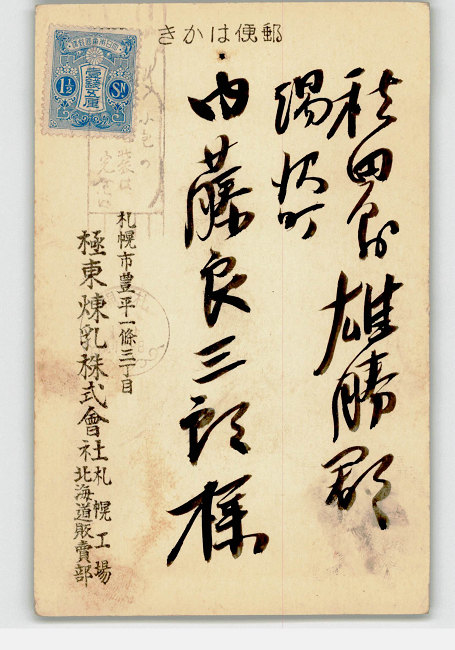 きかは便郵
大日本帝國郵便
壹錢五厘
1½ SN
秋田縣雄勝郡
湯沢町
内藤良三郎様
小包の
札幌市豊平一條三丁目
極東煉乳株式會社札幌工場
北海道販賣部